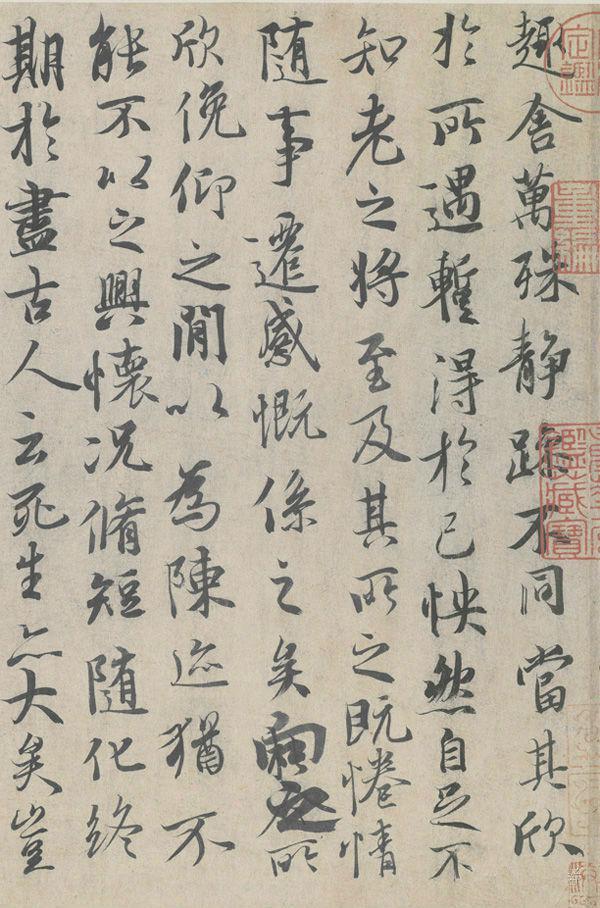 趣舍萬殊静躁不同當其欣
於所遇蹔得於己怏然自足不
知老之將至及其所之既惓情
隨事遷感慨係之矣向之所
欣俛仰之閒以為陳迹猶不
能不以之興懷况脩短隨化終
期於盡古人云死生亦大矣豈
定鑑
重編
鑑藏寶